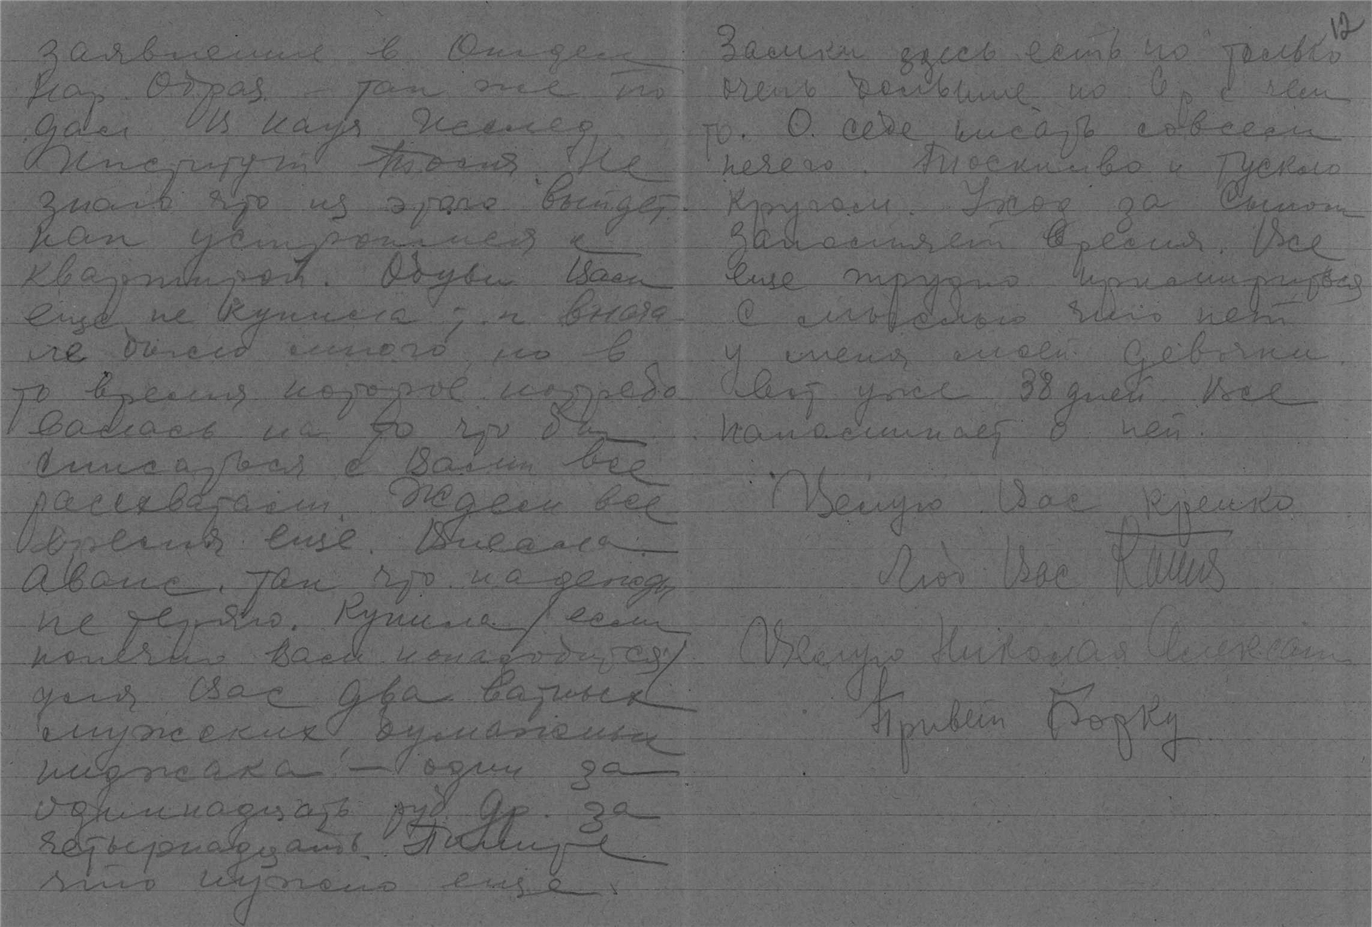 заявление в Отдел
Нар. Образ. – так же по
дам в Научн Исслед
Институт Тоня. Не
знаю что из этого выйдет
как устроимся с
квартирой. Обуви Вам
еще не купила; и внача
ле было много, но в
то время которое потребо
валась на то что бы
списаться с Вами все
расхватали. Ждем все
время еще. Внесла
аванс, так что надежды
не теряю. Купила /если
конечно Вам понадобится/
для Вас два ватных
мужских, бумажных
пиджака – один за
одиннадцать руб др. за
четырнадцать. Пишите
что нужно еще.
12
Замки здесь есть но только
очень большие, по 6 р с чем
то. О себе писать совсем
нечего. Тоскливо и тускло
кругом. Уход за Сыном
заполняет время. Все
еще трудно примириться
с мыслью что нет
у меня моей девочки.
Вот уже 38 дней. Все
напоминает о ней.
Целую Вас крепко
Люб Вас Катя
Целую Николая Алексан
Привет Борку